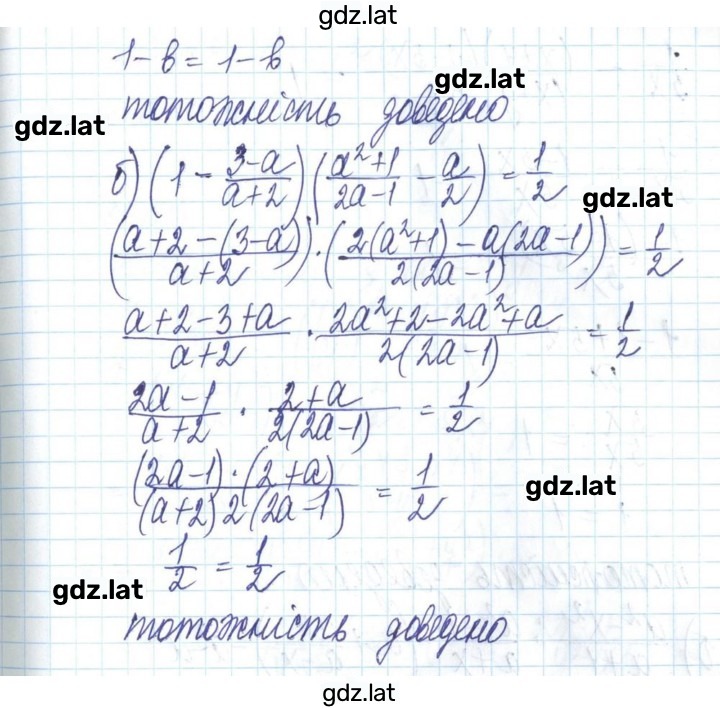 gdz.lat
1-в = 1-в
gdz.lat
тотожність доведено
gdz.lat
б) (1 - (3-a)/(a+2)) ((a²+1)/(2a-1) - a/2) = 1/2
gdz.lat
((a+2-(3-a))/(a+2)) · ((2(a²+1)-a(2a-1))/(2(2a-1))) = 1/2
(a+2-3+a)/(a+2) · (2a²+2-2a²+a)/(2(2a-1)) = 1/2
(2a-1)/(a+2) · (2+a)/(2(2a-1)) = 1/2
((2a-1)·(2+a))/((a+2)2(2a-1)) = 1/2
gdz.lat
1/2 = 1/2
gdz.lat
тотожність доведено
gdz.lat